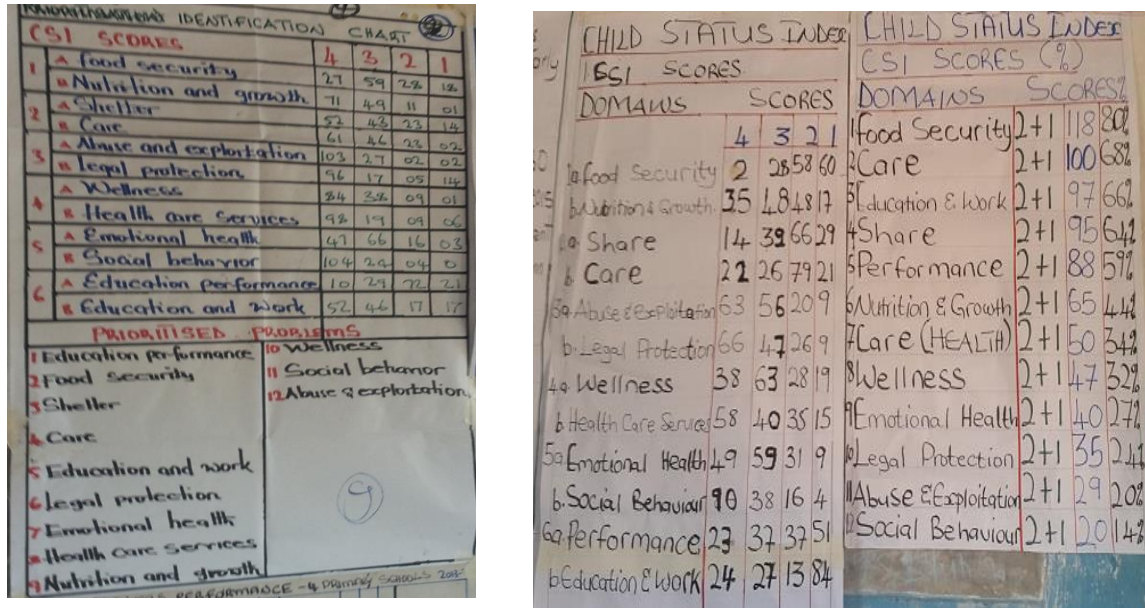 IDENTIFICATION CHART
CSI SCORES 4 3 2 1
1 A food security 27 59 28 18
B Nutrition and growth 71 49 11 01
2 A Sheller 52 43 23 14
B Care 61 46 23 02
3 A Abuse and explortation 103 27 02 02
B Legal protection 96 17 05 14
4 A Wellness 84 38 09 01
B Health care services 98 19 09 06
5 A Emotional health 47 66 16 03
B Social behavior 104 24 04 0
6 A Education performance 10 29 72 21
B Education and work 52 46 17 17
PRIORITISED PROBLEMS
1 Education performance
2 Food security
3 Sheller
4 Care
5 Education and work
6 Legal protection
7 Emotional health
8 Health care services
9 Nutrition and growth
10 Wellness
11 Social behavior
12 Abuse & explortation
9
PERFORMANCE - 4 PRIMARY SCHOOLS
CHILD STATUS INDEX
CSI SCORES
DOMAINS SCORES
4 3 2 1
1a. Food Security 2 28 58 60
b. Nutrition & Growth. 35 48 48 17
2a. Share 14 39 66 29
b. Care 22 26 79 21
3a. Abuse & exploitation 63 56 20 9
b. Legal Protection 66 47 26 9
4a. Wellness 38 63 28 19
b. Health Care Services 58 40 35 15
5a Emotional Health 49 59 31 9
b. Social Behaviour 90 38 16 4
6a. Performance 23 37 37 51
b Education & Work 24 27 13 84
CHILD STATUS INDEX
CSI SCORES (%)
DOMAINS SCORES%
1 Food Security 2+1 118 80%
2 Care 2+1 100 68%
3 Education & Work 2+1 97 66%
4 Share 2+1 95 64%
5 Performance 2+1 88 59%
6 Nutrition & Growth 2+1 65 44%
7 Care (HEALTH) 2+1 50 34%
8 Wellness 2+1 47 32%
9 Emotional Health 2+1 40 27%
10 Legal Protection 2+1 35 24%
11 Abuse & Exploitation 2+1 29 20%
12 Social Behaviour 2+1 20 14%